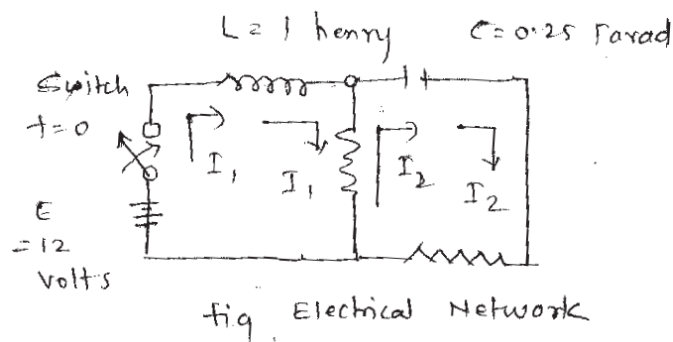 L = 1 henry C = 0.25 Farad
Switch
t=0
I₁ I₁ I₂ I₂
E
=12
Volts
fig Electrical Network